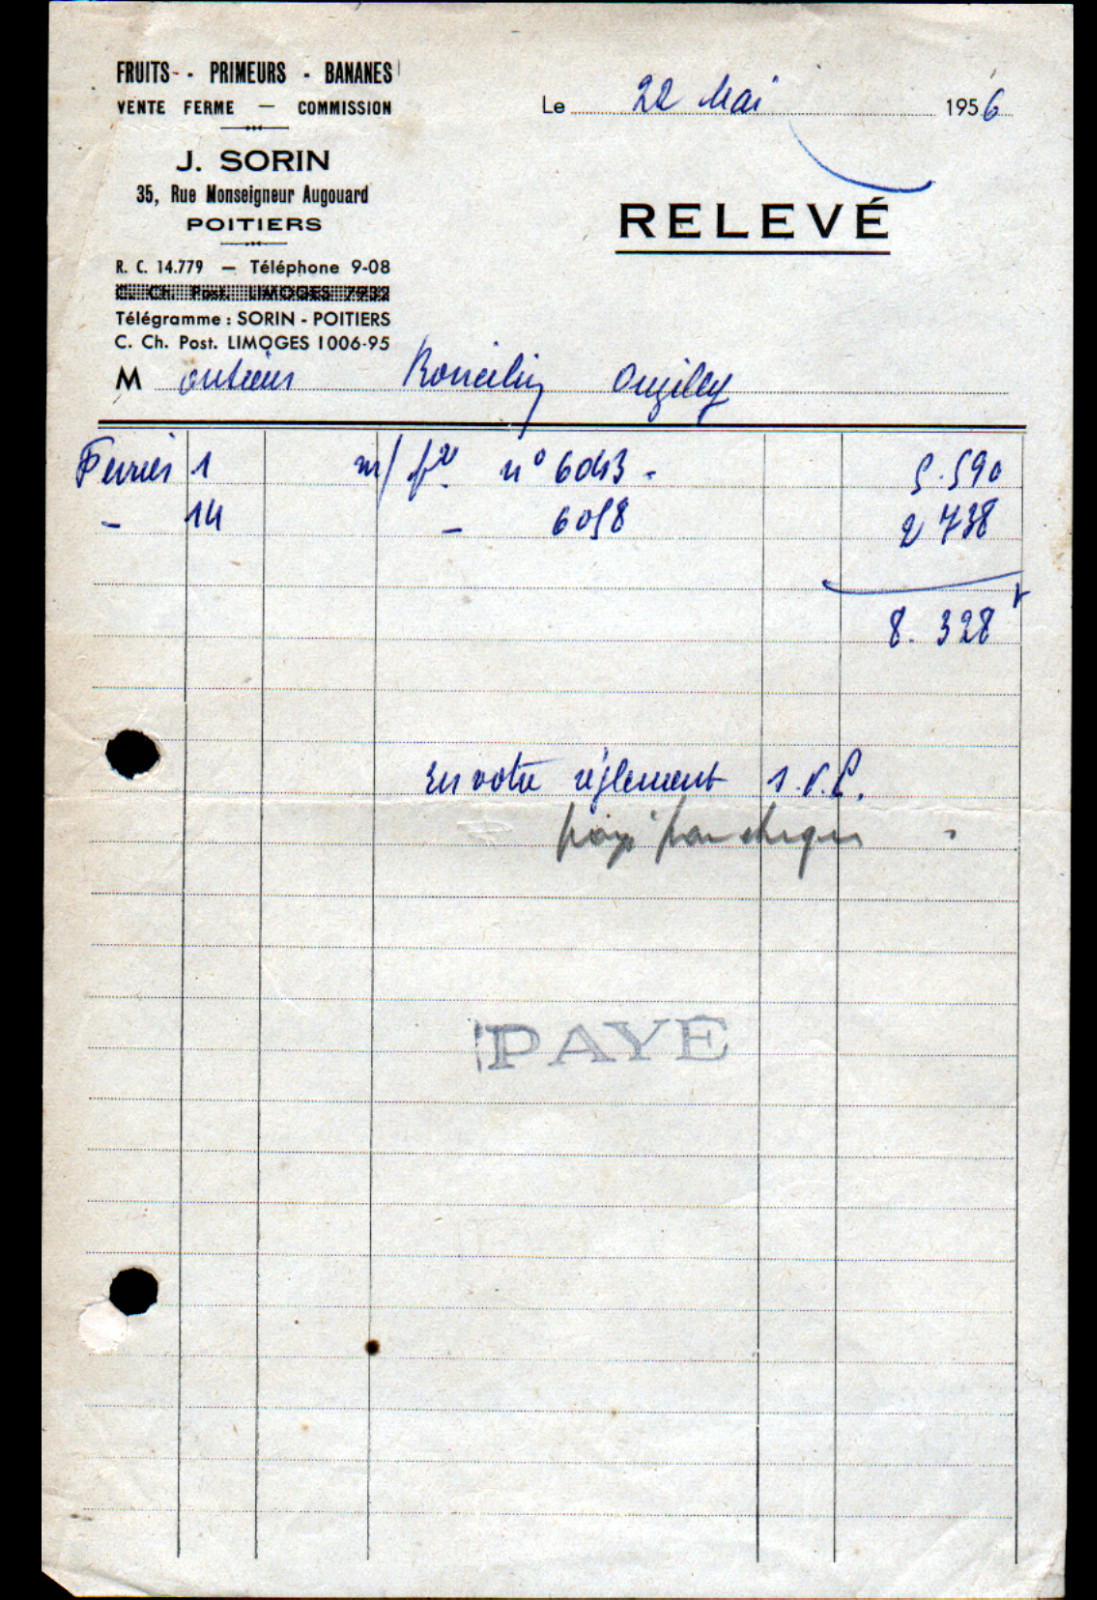 FRUITS - PRIMEURS - BANANES
VENTE FERME — COMMISSION
J. SORIN
35, Rue Monseigneur Augouard
POITIERS
R. C. 14.779 — Téléphone 9-08
C. Ch. Post. LIMOGES 7932
Télégramme : SORIN - POITIERS
C. Ch. Post. LIMOGES 1006-95
Le 22 Mai 1956
RELEVÉ
M Ouzilly
Février 1 n/ fre n° 6043 - 5.590
- 14 - 6058 2 738
8.328
En votre règlement s.v.p.
payé par chèque
PAYÉ